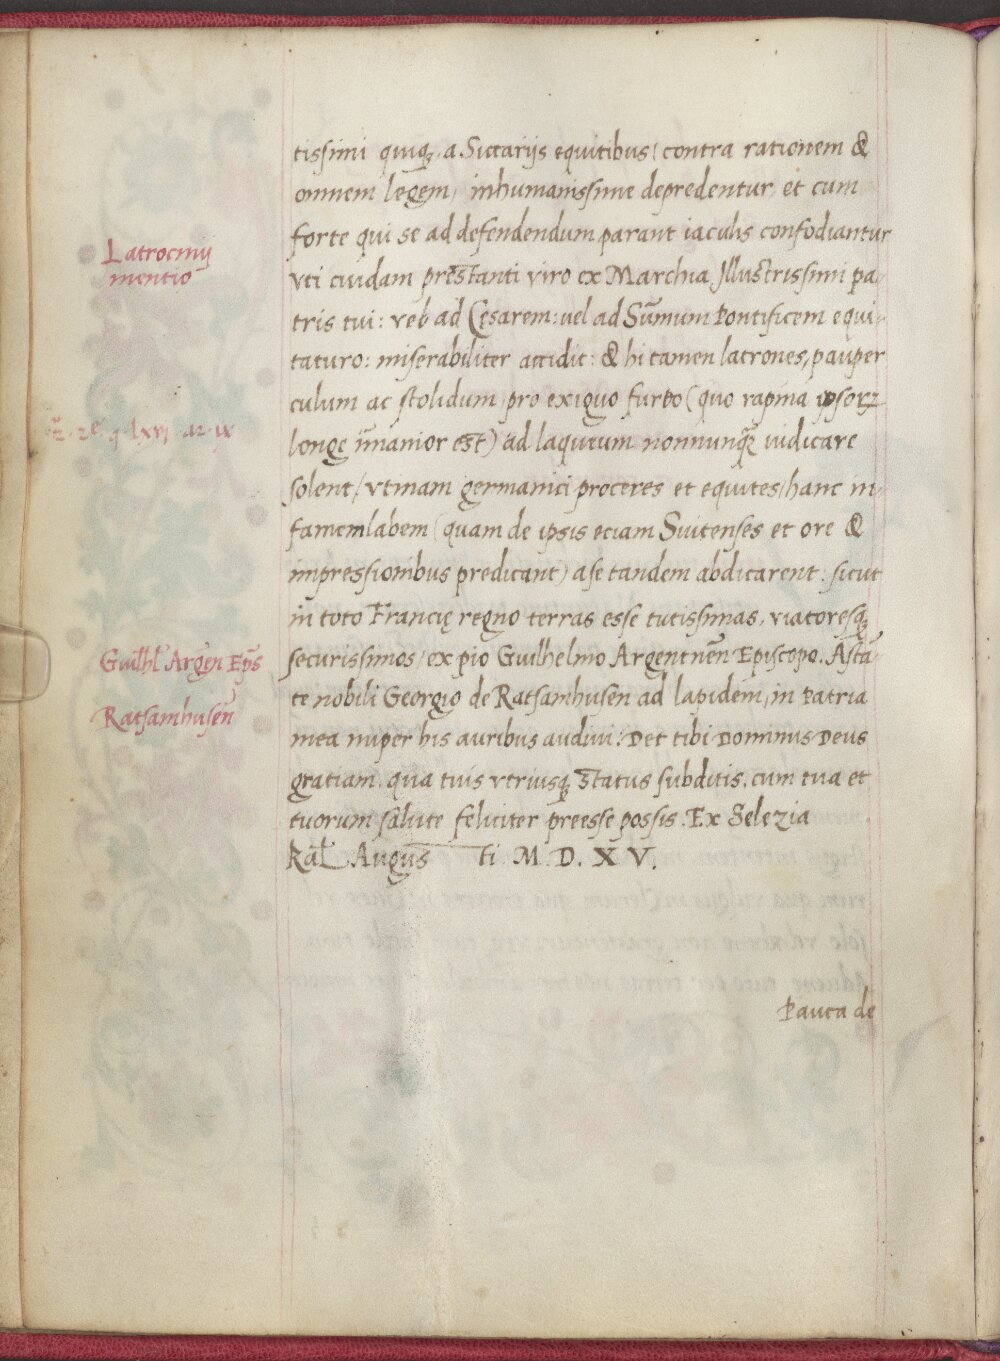 tissimi quiqꝫ, a Siccarijs equitibus / contra rationem &
omnem legem, inhumanissime depredentur, et cum
forte qui se ad defendendum parant iaculis confodiantur
Latrocinij
mentio
vti cuidam prēstanti viro ex Marchia Jllustrissimi pa-
tris tui: vel ad Cęsarem: uel ad Sūmum Pontificem equi-
taturo: miserabiliter accidit: & hi tamen latrones, pauper
culum ac stolidum pro exiguo furto (quo rapina ipsorꝫ
longe īmanior est) ad laqueum nonnunqꝫ iudicare
solent / vtinam germanici proceres et equites / hanc in-
famem labem (quam de ipsis eciam Suitenses et ore &
impressionibus predicant) a se tandem abdicarent: sicut
in toto Francię regno terras esse tutissimas, viatoresqꝫ
Guilhl̄ Argen̄ Ep̄s
securissimos / ex pio Guilhelmo Argentnēn Episcopo. Astā-
Ratsamhusen̄
te nobili Georgio de Ratsamhusen ad lapidem, in Patria
mea nuper his auribus audiui: Det tibi Dominus Deus
gratiam, qua tuis vtriusqꝫ status subditis, cum tua et
tuorum salute feliciter preesse possis. Ex Selezia
Kal̄. Augus ti. M. D. X V.
Pauca de